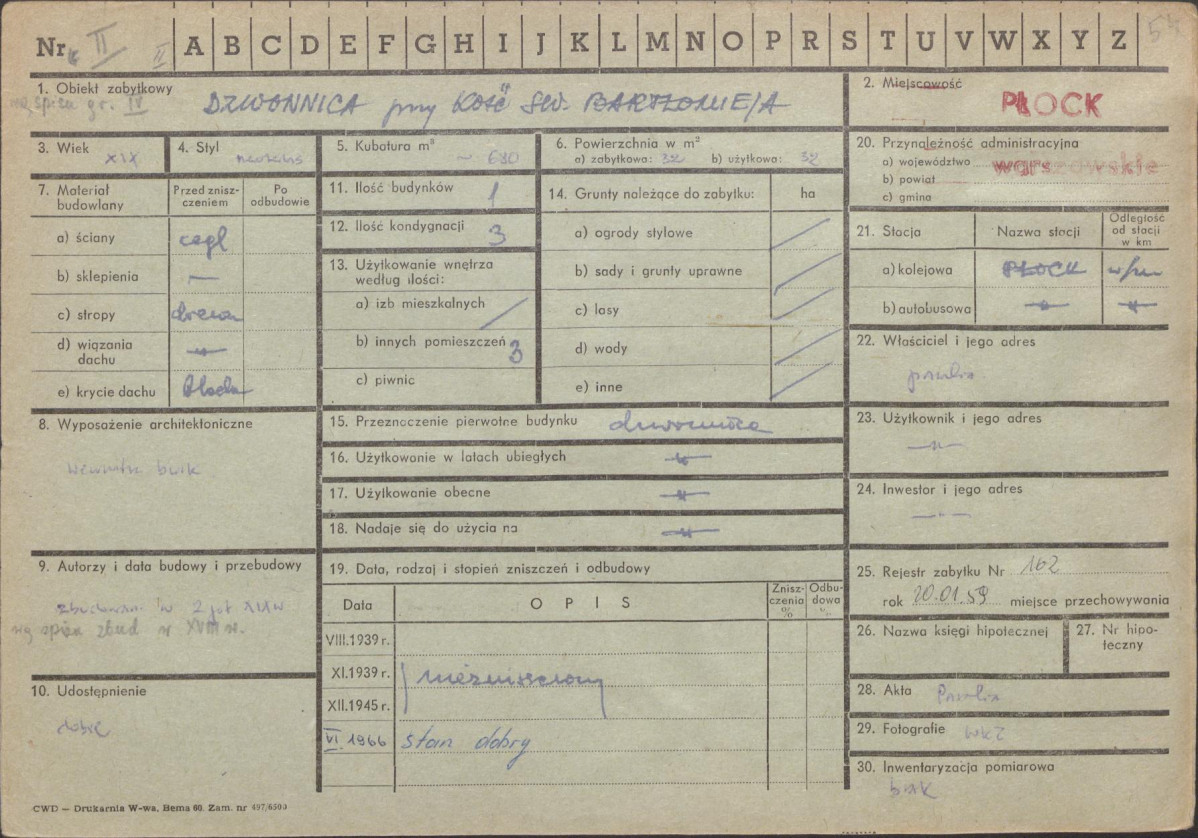 Nr II II A B C D E F G H I J K L M N O P R S T U V W X Y Z 54
1. Obiekt zabytkowy
wg spisu gr. IV
DZWONNICA przy KOŚC ŚW. BARTŁOMIEJA
2. Miejscowość
PŁOCK
3. Wiek XIX
4. Styl
5. Kubatura m³ ~ 680
6. Powierzchnia w m²
a) zabytkowa: 32 b) użytkowa: 32
20. Przynależność administracyjna
a) województwo warszawskie
b) powiat
c) gmina
7. Materiał budowlany
Przed zniszczeniem
Po odbudowie
a) ściany cegł
b) sklepienia —
c) stropy drewn
d) wiązania dachu —„—
e) krycie dachu blacha
11. Ilość budynków 1
12. Ilość kondygnacji 3
13. Użytkowanie wnętrza według ilości:
a) izb mieszkalnych /
b) innych pomieszczeń 3
c) piwnic
14. Grunty należące do zabytku: ha
a) ogrody stylowe /
b) sady i grunty uprawne /
c) lasy /
d) wody /
e) inne /
21. Stacja
Nazwa stacji
Odległość od stacji w km
a) kolejowa PŁOCK w/m
b) autobusowa —„— —„—
22. Właściciel i jego adres
parafia
8. Wyposażenie architektoniczne
wewnątrz brak
15. Przeznaczenie pierwotne budynku dzwonnica
16. Użytkowanie w latach ubiegłych —„—
17. Użytkowanie obecne —„—
18. Nadaje się do użycia na —„—
23. Użytkownik i jego adres
—„—
24. Inwestor i jego adres
—„—
9. Autorzy i data budowy i przebudowy
zbudowana w 2 poł XIX w
wg spisu zbud w XVIII w.
19. Data, rodzaj i stopień zniszczeń i odbudowy
Data
OPIS
Zniszczenia %
Odbudowa %
VIII.1939 r.
XI.1939 r.
niezniszczony
XII.1945 r.
VI 1966 stan dobry
25. Rejestr zabytku Nr 162
rok 20.01.59 miejsce przechowywania
26. Nazwa księgi hipotecznej
27. Nr hipoteczny
10. Udostępnienie
dobre
28. Akta Parafia
29. Fotografie WKZ
30. Inwentaryzacja pomiarowa
brak
CWD — Drukarnia W-wa, Bema 60. Zam. nr 497/6500